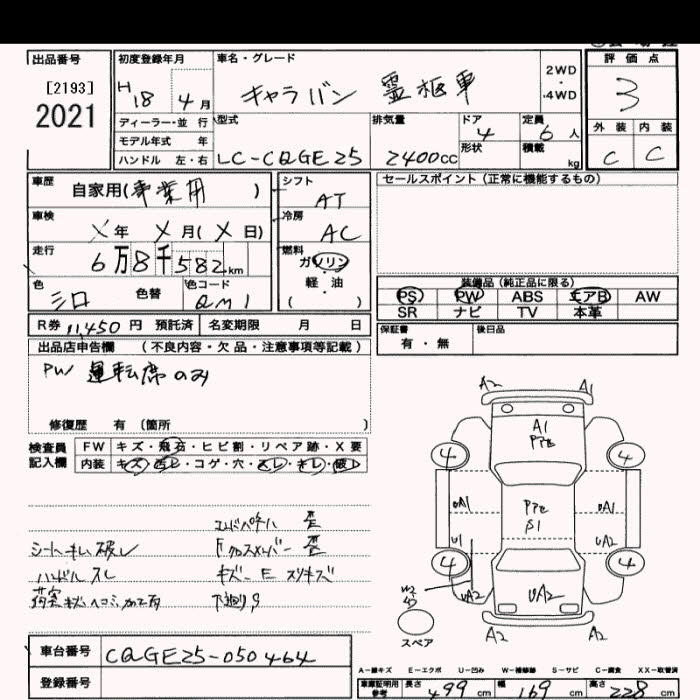 出品番号
[2193]
2021
初度登録年月
H18 4月
車名・グレード
キャラバン 霊柩車
2WD
・4WD
評価点
3
外装 内装
C C
ディーラー・並行
モデル年式 年
ハンドル 左・右
型式
LC-CQGE25
排気量
2400cc
ドア
4
形状
定員
6人
積載
kg
車歴
自家用(事業用)
車検
X年 X月(X日)
走行
6万8千582km
色
シロ
色替
色コード
QM1
シフト
AT
冷房
AC
燃料
ガソリン
・
軽・油
( )
セールスポイント(正常に機能するもの)
装備品(純正品に限る)
PS PW ABS エアB AW
SR ナビ TV 本革
R券 11,450円 預託済
名変期限 月 日
保証書
有・無
後日品
出品店申告欄 (不良内容・欠品・注意事項等記載)
PW 運転席のみ
修復歴 有 (箇所 )
検査員
記入欄
FW キズ・飛石・ヒビ割・リペア跡・X要
内装 キズ・凹レ・コゲ・穴・スレ・キレ・破レ
シートキレ 破レ
ハンドル スレ
下廻りS
A2 A1
A1
4 4
UA1
S1
UA1
U1
UA2
4 4
UA2
UA2
W2
スペア
A2 A2
車台番号
CQGE25-050464
登録番号
A-線キズ E-エクボ U-凹み W-補修跡 S-サビ C-腐食 XX-取替済
車庫証明用
参考
長さ 499cm 幅 169cm 高さ 228cm